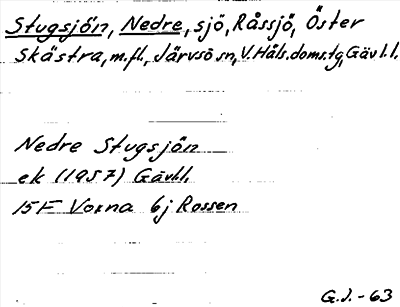 Stugsjön, Nedre, sjö, Råssjö, Öster
Skästra, m.fl., Järvsö sn, V. Häls. doms. tg, Gävl. l.
Nedre Stugsjön
ek (1957) Gävl.l.
15F Voxna 6j Rossen
G.J. - 63